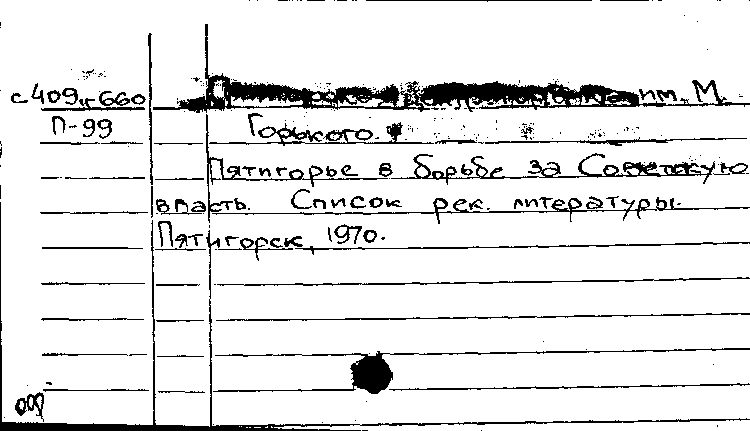 с409/660
им. М.
П-99 Горького.
Пятигорье в борьбе за Советскую
власть. Список рек. литературы.
Пятигорск, 1970.